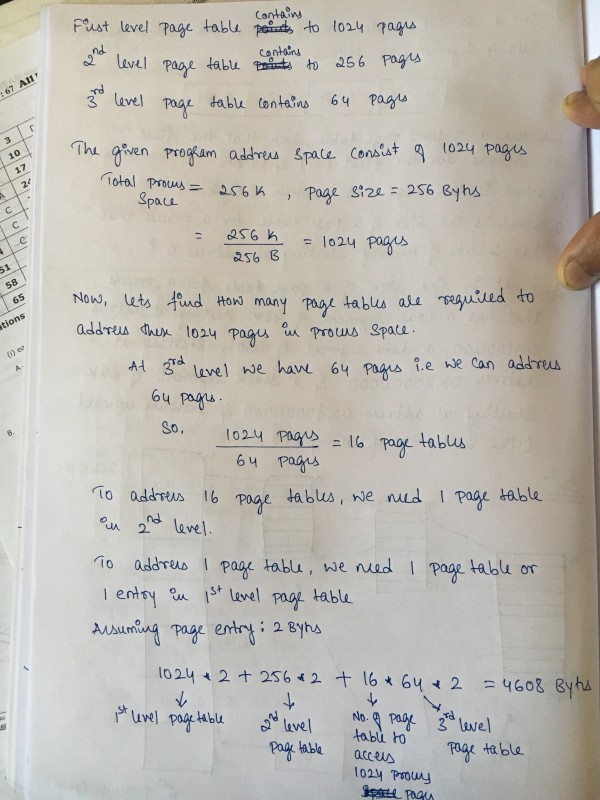 First level page table contains to 1024 pages
2nd level page table contains to 256 pages
3rd level page table contains 64 pages
The given program address space consist of 1024 pages
Total process space = 256 K , page size = 256 Bytes
= 256 K / 256 B = 1024 pages
Now, lets find How many page tables are required to
address these 1024 pages in process space.
At 3rd level we have 64 pages i.e we can address
64 pages.
So, 1024 pages / 64 pages = 16 page tables
To address 16 page tables, we need 1 page table
in 2nd level.
To address 1 page table, we need 1 page table or
1 entry in 1st level page table
Assuming page entry : 2 Bytes
1024 * 2 + 256 * 2 + 16 * 64 * 2 = 4608 Bytes
1st level page table
2nd level page table
No. of page table to access 1024 process pages
3rd level page table
: 67 All
3
10
17
24
C
C
51
58
65
tions
(i)
A.
8.